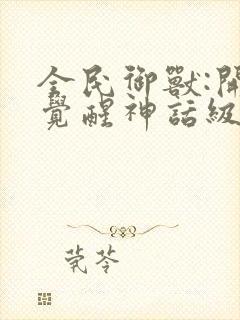 全民御獸:開
覺醒神話級
茺苓